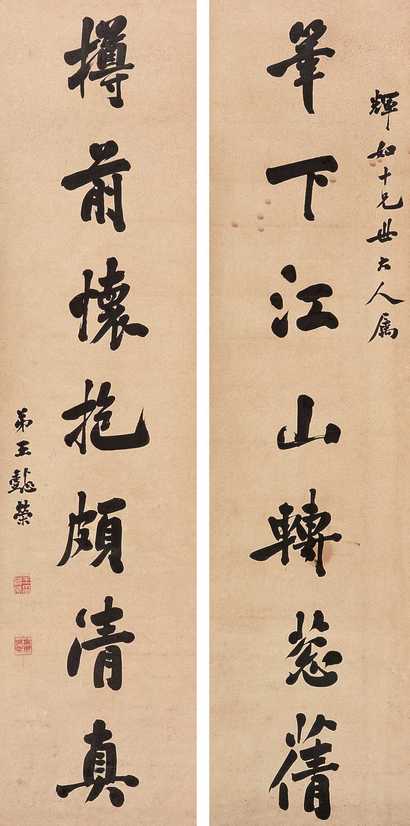 輝如十兄世大人屬
筆下江山轉葱蒨
樽前懷抱頗清真
弟王懿榮